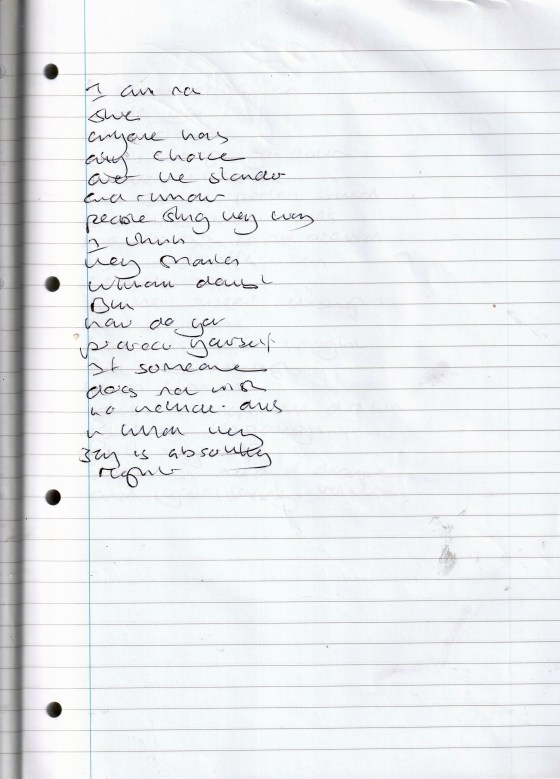 I am not
sure
anyone has
any choice
over the slander
and rumour
people sling their way
I think
they should
without doubt
But
how do you
protect yourself
If someone
does not wish
to
what they
say is absolutely
right